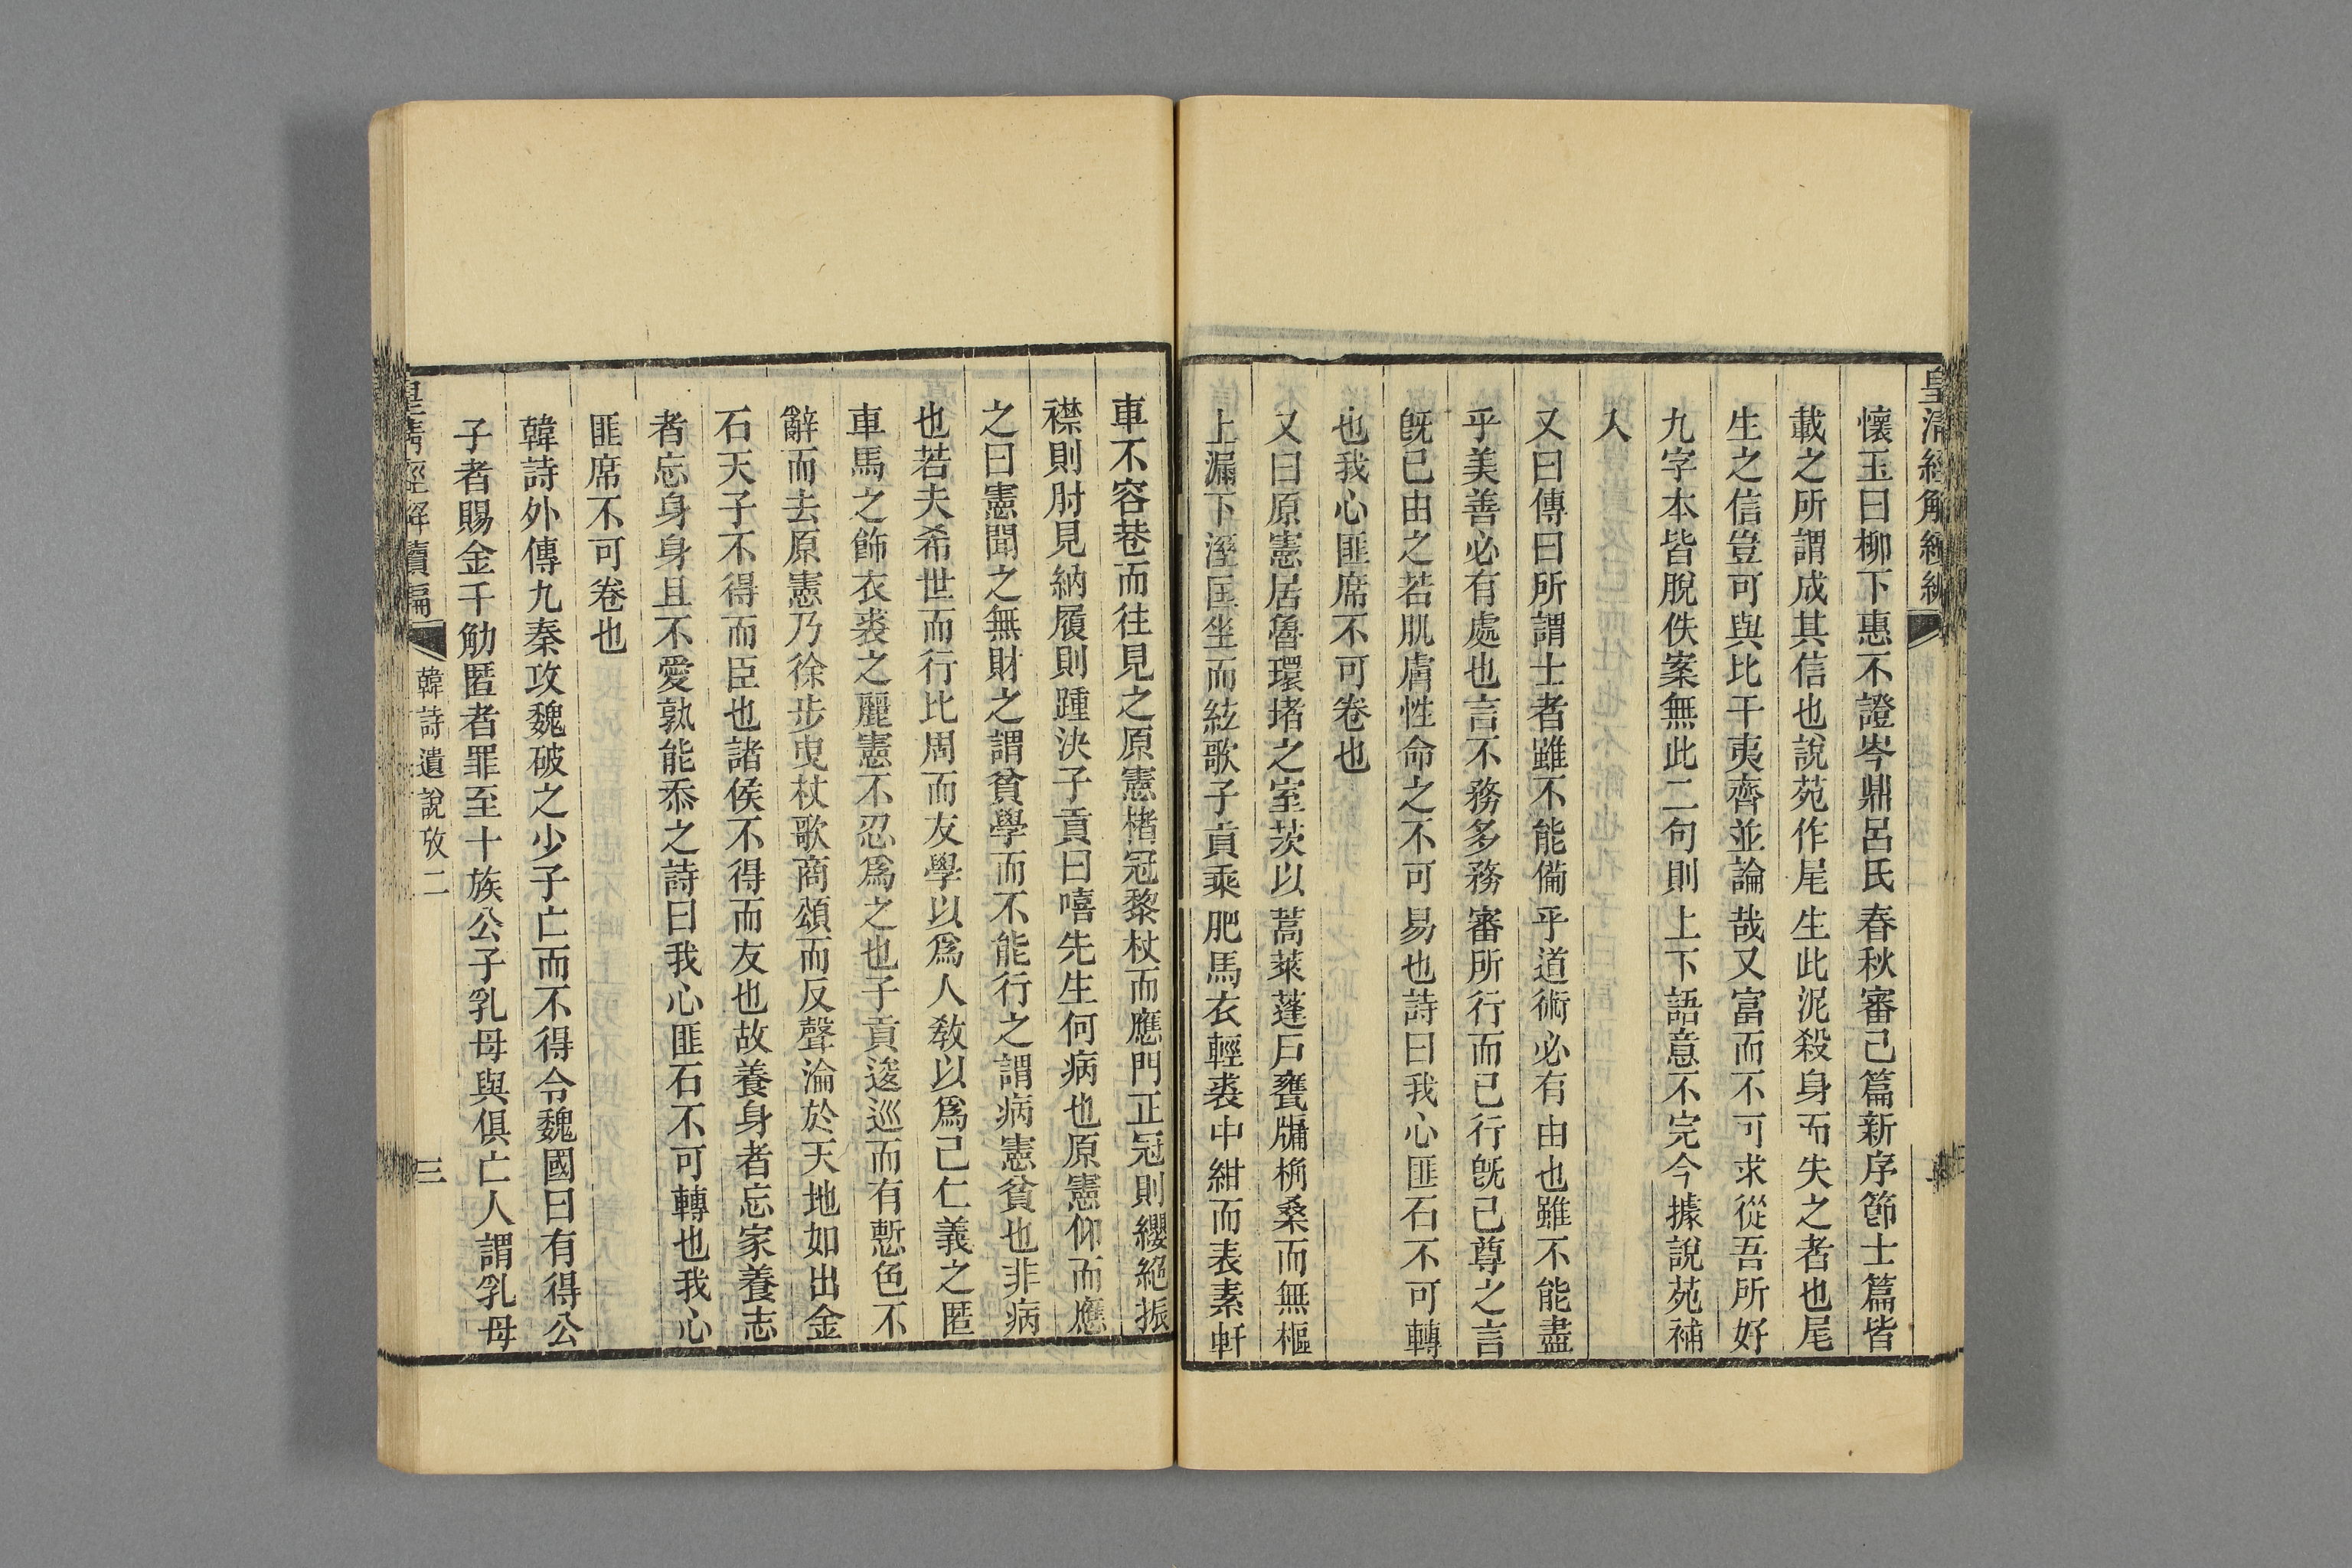 皇清經解續編
懷玉曰柳下惠不證岑鼎呂氏春秋審己篇新序節士篇皆
載之所謂成其信也說苑作尾生此泥殺身而失之者也尾
生之信豈可與比干夷齊並論哉又富而不可求從吾所好
九字本皆脫佚案無此二句則上下語意不完今據說苑補
入
又曰傳曰所謂士者雖不能備乎道術必有由也雖不能盡
乎美善必有處也言不務多務審所行而已行旣已尊之言
旣已由之若肌膚性命之不可易也詩曰我心匪石不可轉
也我心匪席不可卷也
又曰原憲居魯環堵之室茨以蒿萊蓬戶甕牖桷桑而無樞
上漏下溼匡坐而絃歌子貢乘肥馬衣輕裘中紺而表素軒
車不容巷而往見之原憲楮冠黎杖而應門正冠則纓絕振
襟則肘見納履則踵決子貢曰嘻先生何病也原憲仰而應
之曰憲聞之無財之謂貧學而不能行之謂病憲貧也非病
也若夫希世而行比周而友學以爲人敎以爲己仁義之匿
車馬之飾衣裘之麗憲不忍爲之也子貢逡巡而有慙色不
辭而去原憲乃徐步曳杖歌商頌而反聲淪於天地如出金
石天子不得而臣也諸侯不得而友也故養身者忘家養志
者忘身身且不愛孰能忝之詩曰我心匪石不可轉也我心
匪席不可卷也
韓詩外傳九秦攻魏破之少子亡而不得令魏國曰有得公
子者賜金千觔匿者罪至十族公子乳母與俱亡人謂乳母
皇淸經解續編
韓詩遺說攷二
三